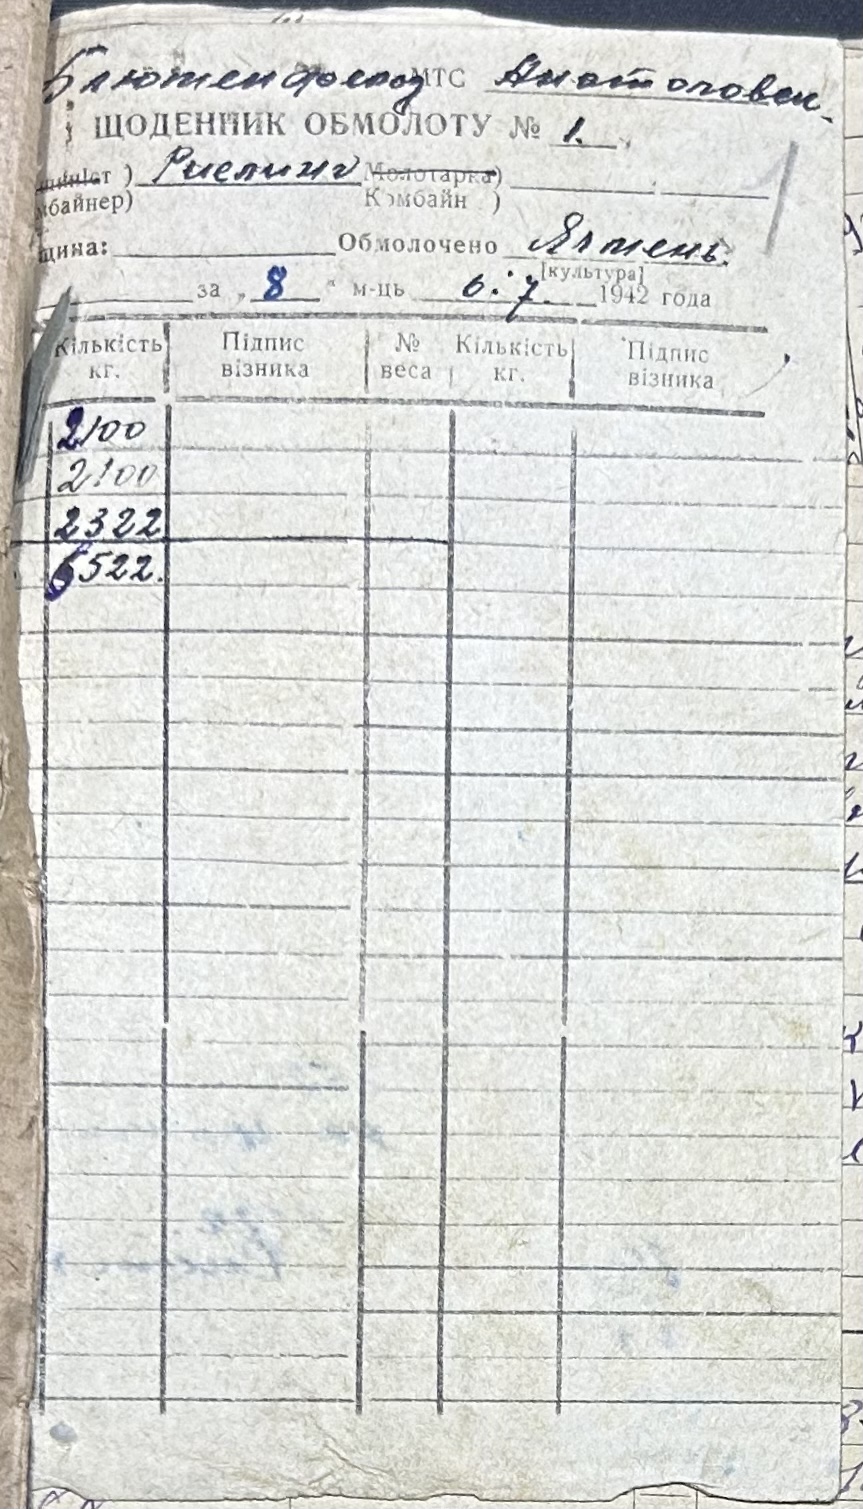 Блюменфельд МТС Анатоловск.
ЩОДЕННИК ОБМОЛОТУ № 1.
шиніст ) Рислинг Молотарка)
мбайнер) Комбайн )
щина: Обмолочено Ячмень.
[культура]
за „ 8 " м-ць 6. 7 1942 года
Кількість кг. Підпис візника № веса Кількість кг. Підпис візника
2100
2100
2322
6522.
1